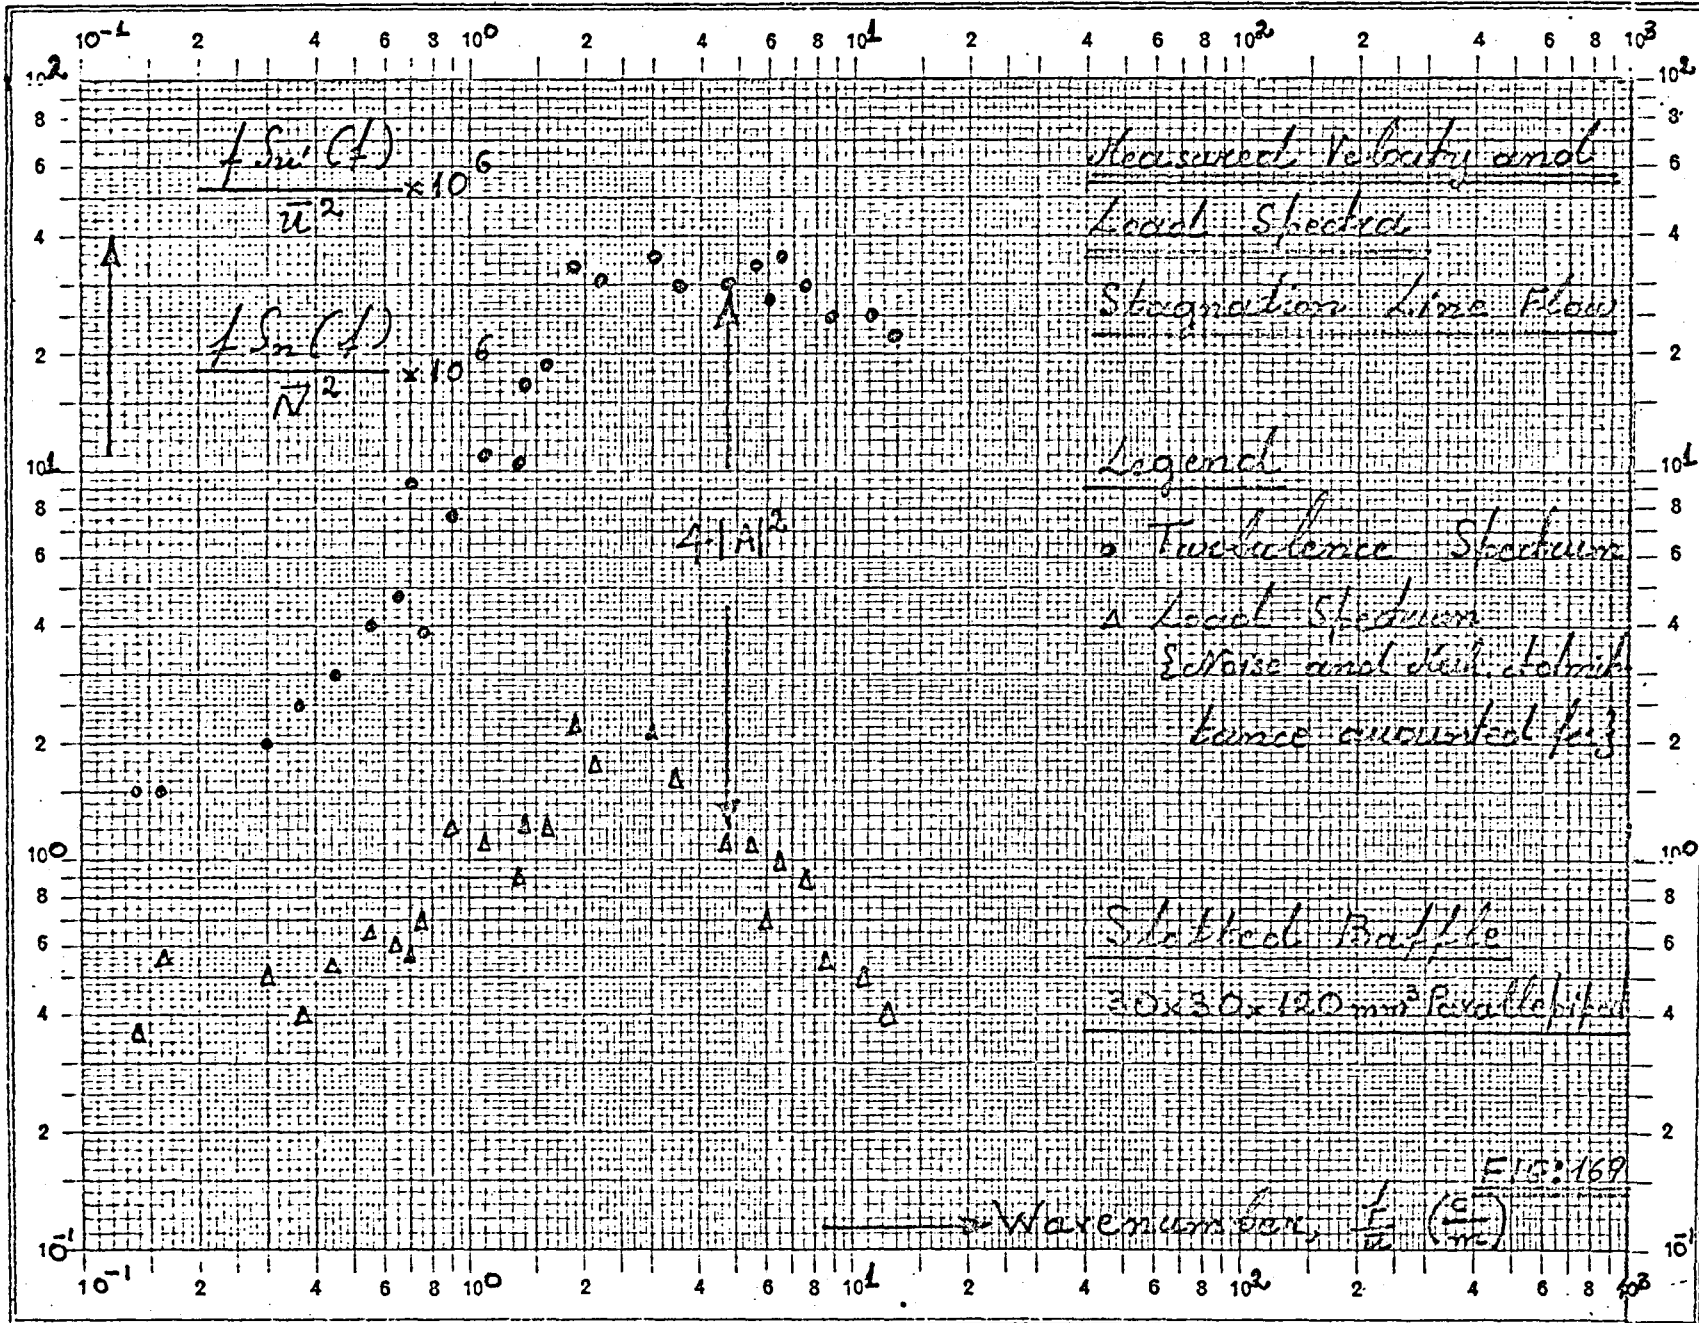 10-1 2 4 6 8 10^0 2 4 6 8 10^1 2 4 6 8 10^2 2 4 6 8 10^3
10^2 8 6 4 2 10^1 8 6 4 2 10^0 8 6 4 2 10-1
f Su' (f)
ū^2 × 10^6
f Sn (f)
N̄^2 × 10^6
4·|A|^2
Measured Velocity and
Load Spectra
Stagnation Line Flow
Legend
o Turbulence Spectrum
Δ Load Spectrum
{Noise and admit
tance accounted for}
Slotted Baffle
30x30x120mm³ Parallepiped
FIG:169
Wavenumber, f/ū (c/m)
10^2 8 6 4 2 10^1 8 6 4 2 10^0 8 6 4 2 10-1
10-1 2 4 6 8 10^0 2 4 6 8 10^1 2 4 6 8 10^2 2 4 6 8 10^3